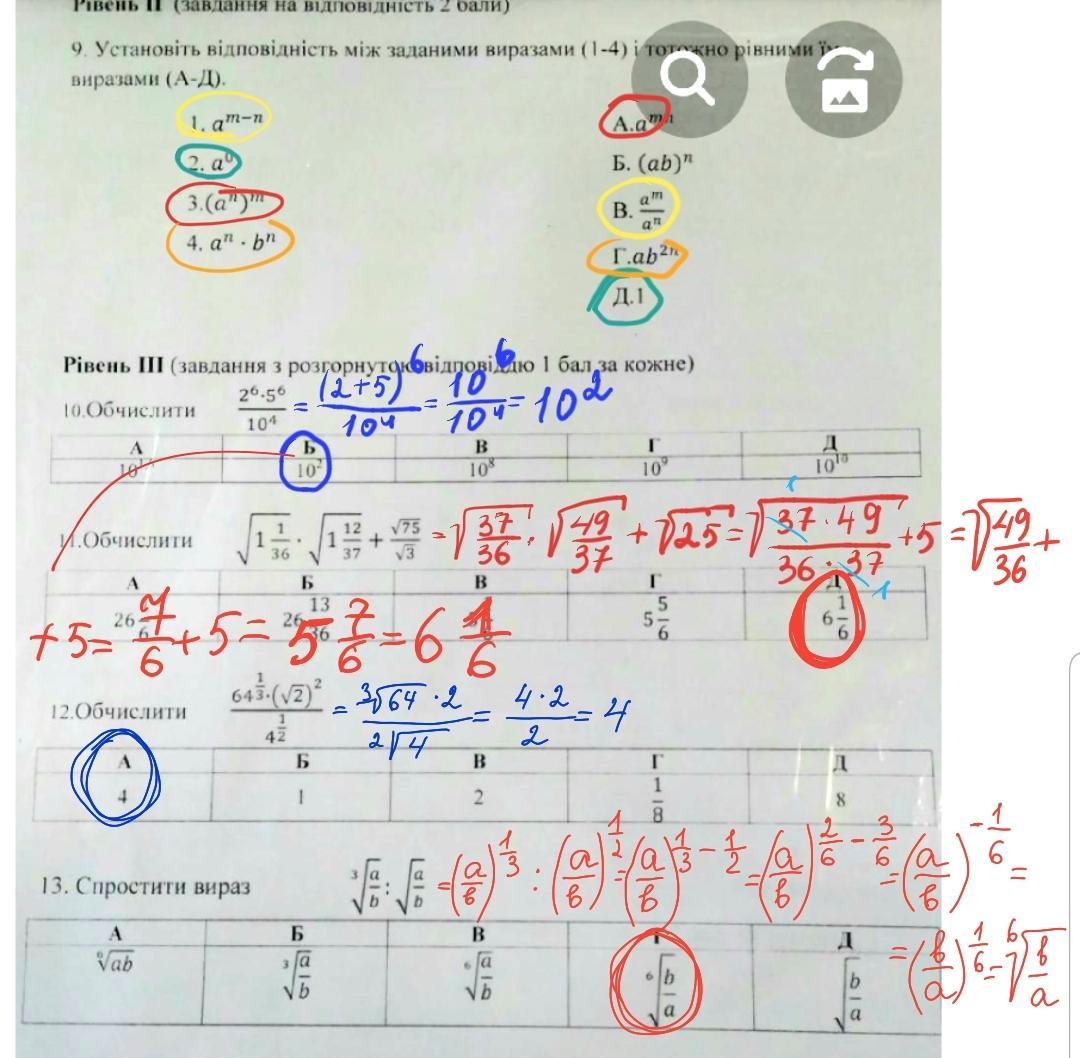 Рівень II (завдання на відповідність 2 бали)
9. Установіть відповідність між заданими виразами (1-4) і тотожно рівними їм
виразами (А-Д).
1. a^{m-n}
А.a^{mn}
2. a^0
Б. (ab)^n
3.(a^n)^m
В. a^m/a^n
4. a^n · b^n
Г.ab^{2n}
Д.1
Рівень III (завдання з розгорнутою відповіддю 1 бал за кожне)
10.Обчислити 2^6·5^6/10^4 = (2+5)^6/10^4 = 10^6/10^4 = 10^2
А Б В Г Д
10^2 10^8 10^9 10^{10}
11.Обчислити √(1 1/36) · √(1 12/37) + √75/√3 = √(37/36) · √(49/37) + √25 = √(37·49/36·37) + 5 = √(49/36) +
1 1
А Б В Г Д
26 13/36 5 5/6 6 1/6
+5 = 7/6 + 5 = 5 7/6 = 6 1/6
12.Обчислити 64^{1/3}·(√2)^2/4^{1/2} = ∛64 · 2/²√4 = 4·2/2 = 4
А Б В Г Д
4 1 2 1/8 8
13. Спростити вираз ∛(a/b) : √(a/b) = (a/в)^{1/3} : (a/в)^{1/2} = (a/в)^{1/3 - 1/2} = (a/в)^{2/6 - 3/6} = (a/в)^{-1/6} =
= (в/a)^{1/6} = ⁶√(в/a)
А Б В Г Д
∛(a/b) ⁶√(a/b) ⁶√(b/a) √(b/a)